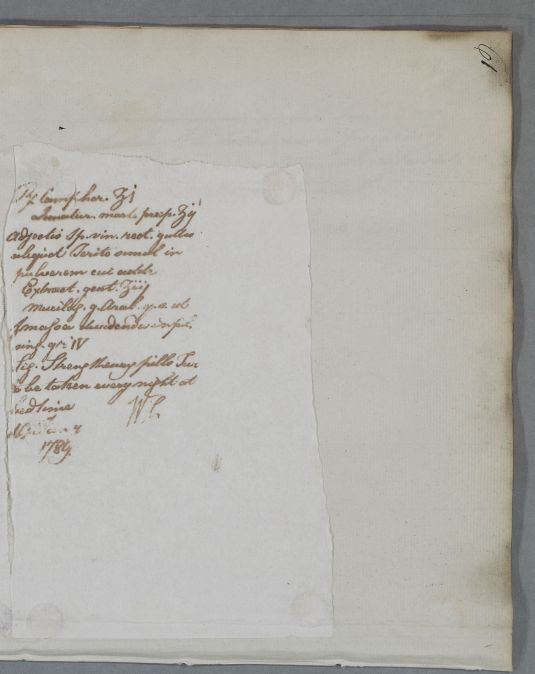 Camphor. Ʒj
mart. prep. Ʒij
Adjectis Sp. vin. rect. guttis
aliquot Terito simul in
pulverem cui adde
Extract. gent. Ʒiij
Mucilag. g. Arab. q. s. ut
massa dividenda in pil.
sing. gr. IV
Sig. Strengthening pills Two
to be taken every night at
bedtime
W
1789